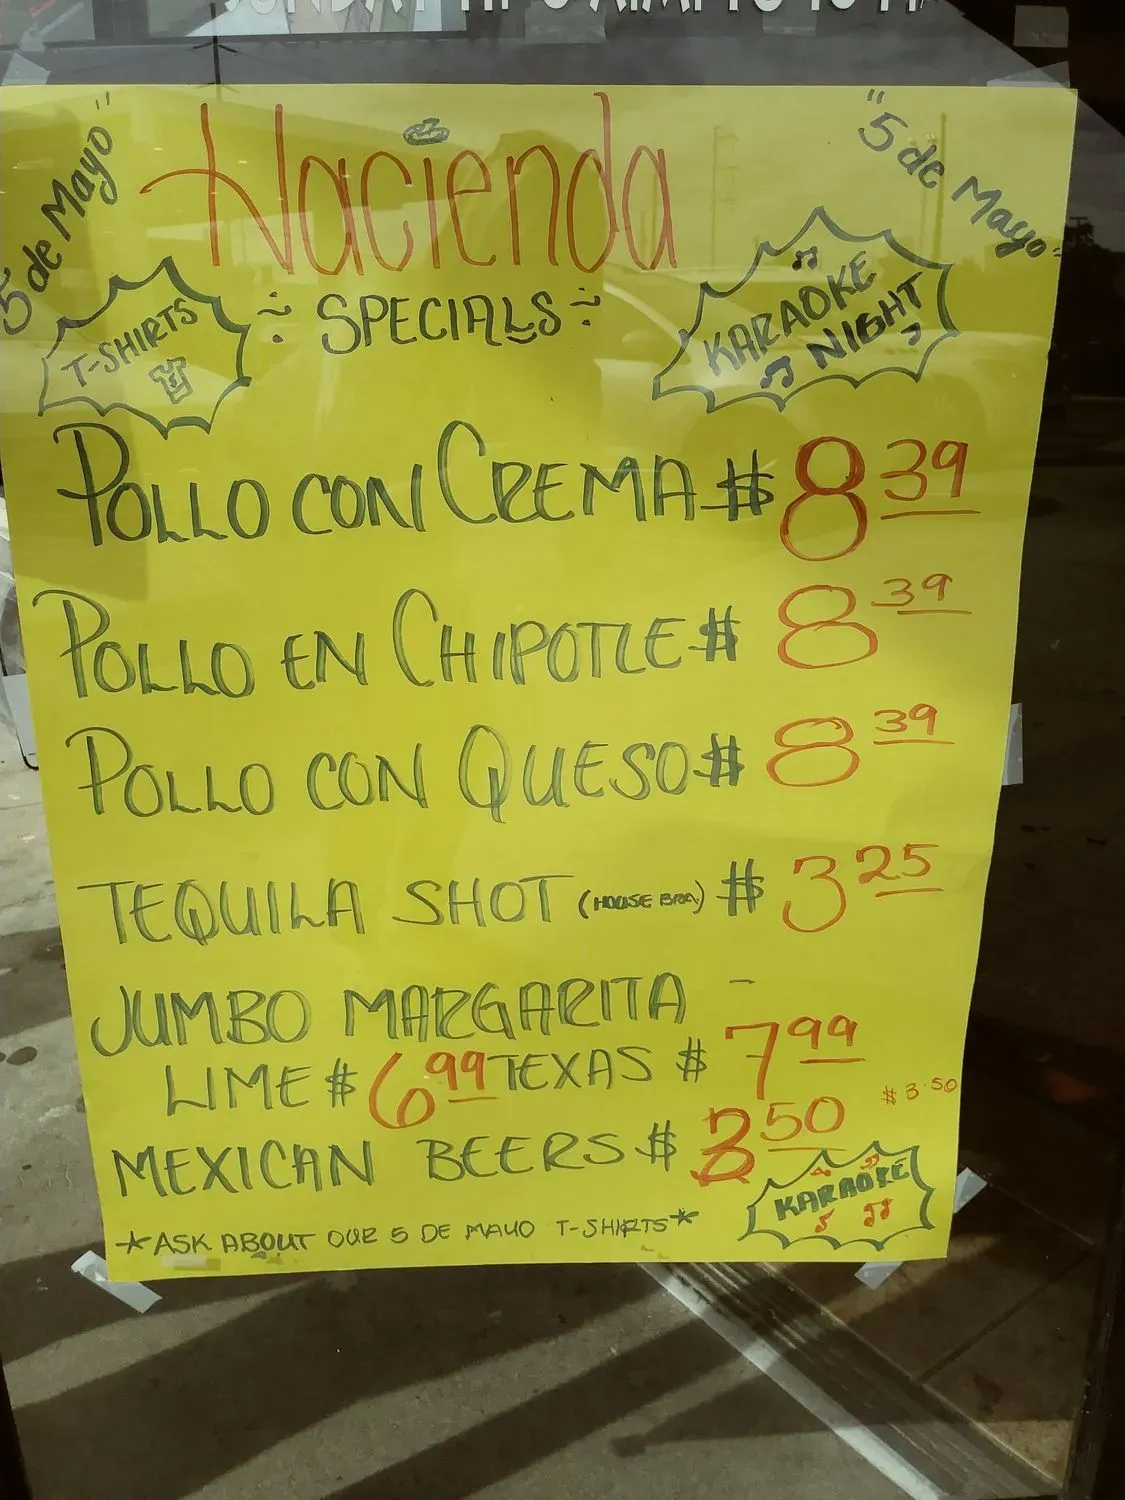 "5 de Mayo"
Hacienda
"5 de Mayo"
T-SHIRTS
SPECIALS
KARAOKE
NIGHT
POLLO CON CREMA $ 8 39
POLLO EN CHIPOTLE $ 8 39
POLLO CON QUESO $ 8 39
TEQUILA SHOT (HOUSE BRA.) $ 3 25
JUMBO MARGARITA -
LIME $ 6 99 TEXAS $ 7 99
$3.50
MEXICAN BEERS $ 3 50
KARAOKE
*ASK ABOUT OUR 5 DE MAYO T-SHIRTS*